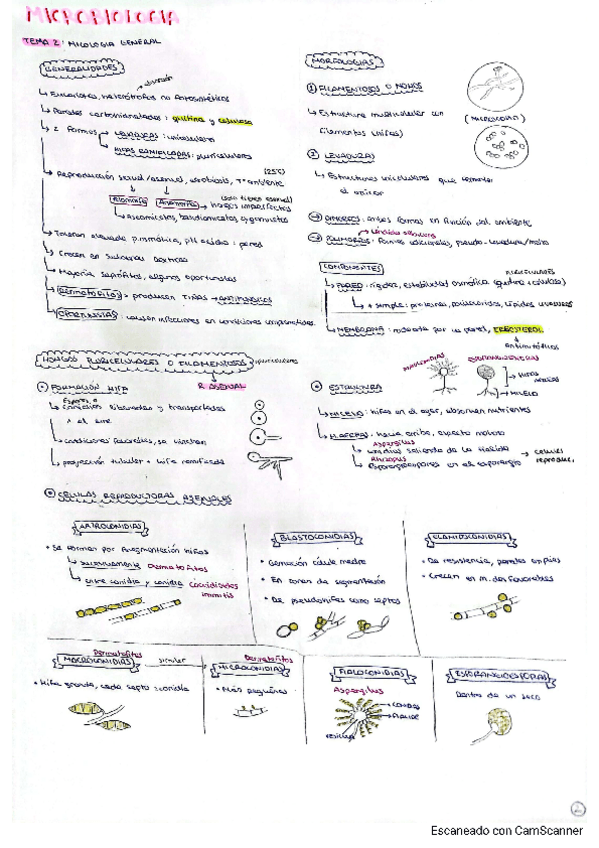 MICROBIOLOGIA
TEMA 2: MICOLOGIA GENERAL
GENERALIDADES
Eucariotas, heterótrofos no fotosintéticos
Paredes carbohidratadas: quitina y celulosa
2 formas
LEVADURAS: unicelulares
HIFAS RAMIFICADAS: pluricelulares
(25ºC)
Reproducción sexual/asexual, aerobiosis, Tª ambiente
(solo tienen asexual)
hongos imperfectos
Ascomicetos, basidiomicetos
Toleran elevada p.osmótica, pH ácidos: pared
Crecen en Sabouraud Dextrosa
Mayoría saprófitos, algunos oportunistas
DERMATOFITOS producen TIÑAS
OPORTUNISTAS: causan infecciones en condiciones
MORFOLOGIAS
1 FILAMENTOSOS O MOHOS
Estructura multicelular con
filamentos (hifas)
(MICROSCOPIO)
2 LEVADURAS
Estructuras unicelulares que
el
DIMORFOS: ambas formas en función del ambiente
Cándida
POLIMORFOS: formas adicionales, pseudo-levadura/moho
COMPONENTES
PARED: rigidez, estabilidad osmótica (quitina + celulosa)
+ simple: proteínas, polisacáridos, lípidos
MEMBRANA: rodeada por la pared, ERGOSTEROL
antimicóticos
HONGOS PLURICELULARES O FILAMENTOSOS
R ASEXUAL
1 FORMACIÓN HIFA
Espora o
conidios liberados y transportados
x el aire
condiciones favorables, se hinchan
proyección tubular + hifa ramificada
ESTRUCTURA
HIFAS
AÉREAS
MICELIO
MICELIO: hifas en el agar, absorben nutrientes
H. AÉREAS: hacia arriba, aspecto mohoso
Aspergillus
conidias saliendo de la
Rhizopus
Esporangiosporas en el esporangio
células
reproduc.
CÉLULAS REPRODUCTORAS ASEXUALES
ARTROCONIDIAS
Se forman por fragmentación hifas
Dermatofitos
entre conidia y conidia Coccidioides
immitis
BLASTOCONIDIAS
Gemación célula madre
En zonas de segmentación
De pseudohifas como septos
CLAMIDOCONIDIAS
De resistencia, paredes amplias
Crecen en m. desfavorables
Dermatofitos
MACROCONIDIAS
similar
Hifa grande, cada septo 1 conidia
Dermatofitos
MICROCONIDIAS
Más pequeñas
FIALOCONIDIAS
Aspergillus
CONIDIAS
FIALIDE
VESÍCULA
ESPORANGIOSPORAS
Dentro de un saco
2
Escaneado con CamScanner